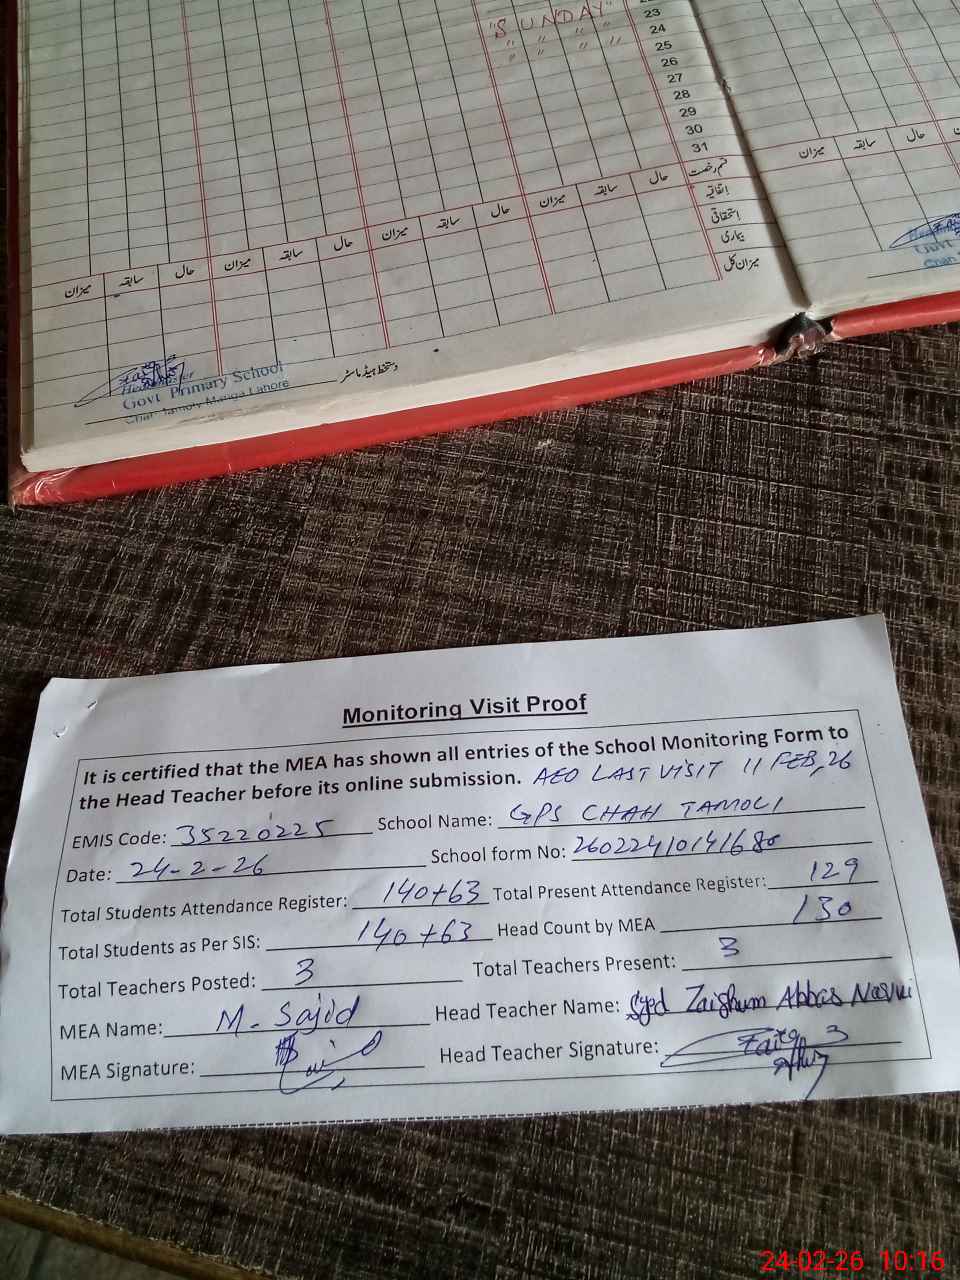 "SUNDAY"
" " " "
" " " "
23
24
25
26
27
28
29
30
31
قسم رخصت
اتفاقیہ
استحقاقی
بیماری
میزان کل
حال سابقہ میزان حال سابقہ میزان حال سابقہ میزان حال سابقہ میزان
دستخط ہیڈ ماسٹر
Headmaster
Govt Primary School
Chah Tamoly Manga Lahore
میزان سابقہ حال
Govt
Chah
Monitoring Visit Proof
It is certified that the MEA has shown all entries of the School Monitoring Form to
the Head Teacher before its online submission. AEO LAST VISIT 11 FEB, 26
EMIS Code: 35220225 School Name: GPS CHAH TAMOLI
Date: 24-2-26 School form No: 26022410141680
Total Students Attendance Register: 140+63 Total Present Attendance Register: 129
Total Students as Per SIS: 140+63 Head Count by MEA 130
Total Teachers Posted: 3 Total Teachers Present: 3
MEA Name: M. Sajid Head Teacher Name: Syed Zaighum Abbas Naqvi
MEA Signature: Head Teacher Signature:
24-02-26 10:16